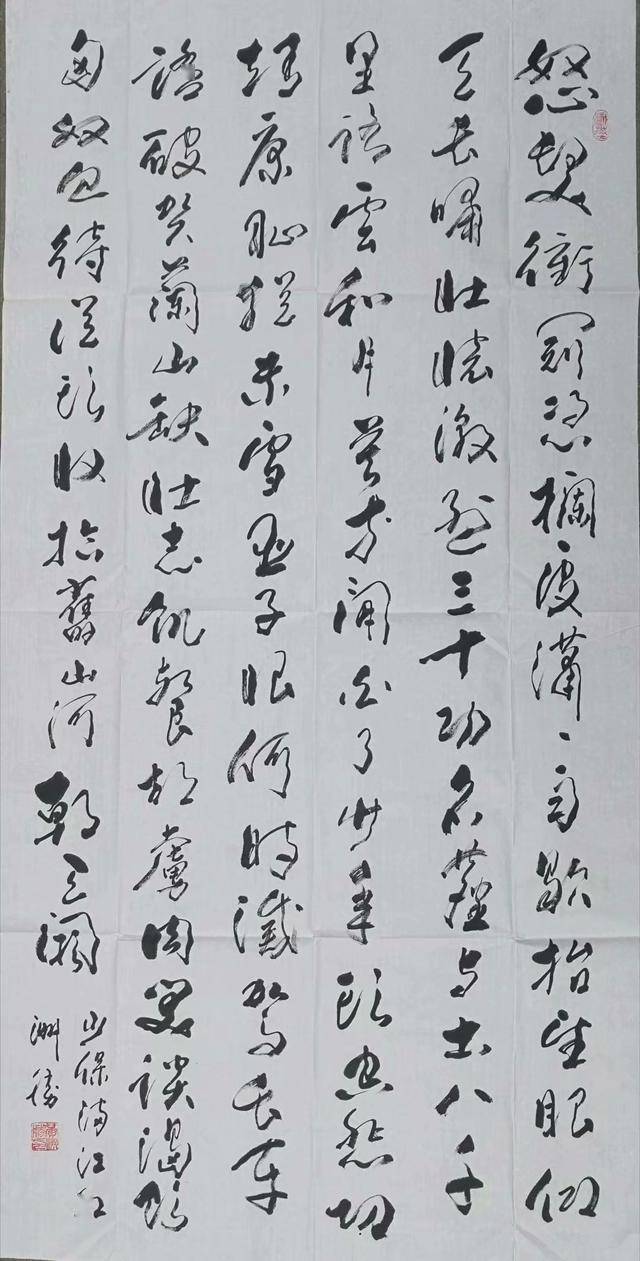 怒髮衝冠憑欄處瀟瀟雨歇抬望眼仰
天長嘯壯懷激烈三十功名塵与土八千
里路雲和月莫等閒白了少年頭空悲切
靖康耻猶未雪臣子恨何時滅駕長車
踏破賀蘭山缺壯志飢餐胡虜肉笑談渴飲
匈奴血待從頭收拾舊山河朝天闕
满江红